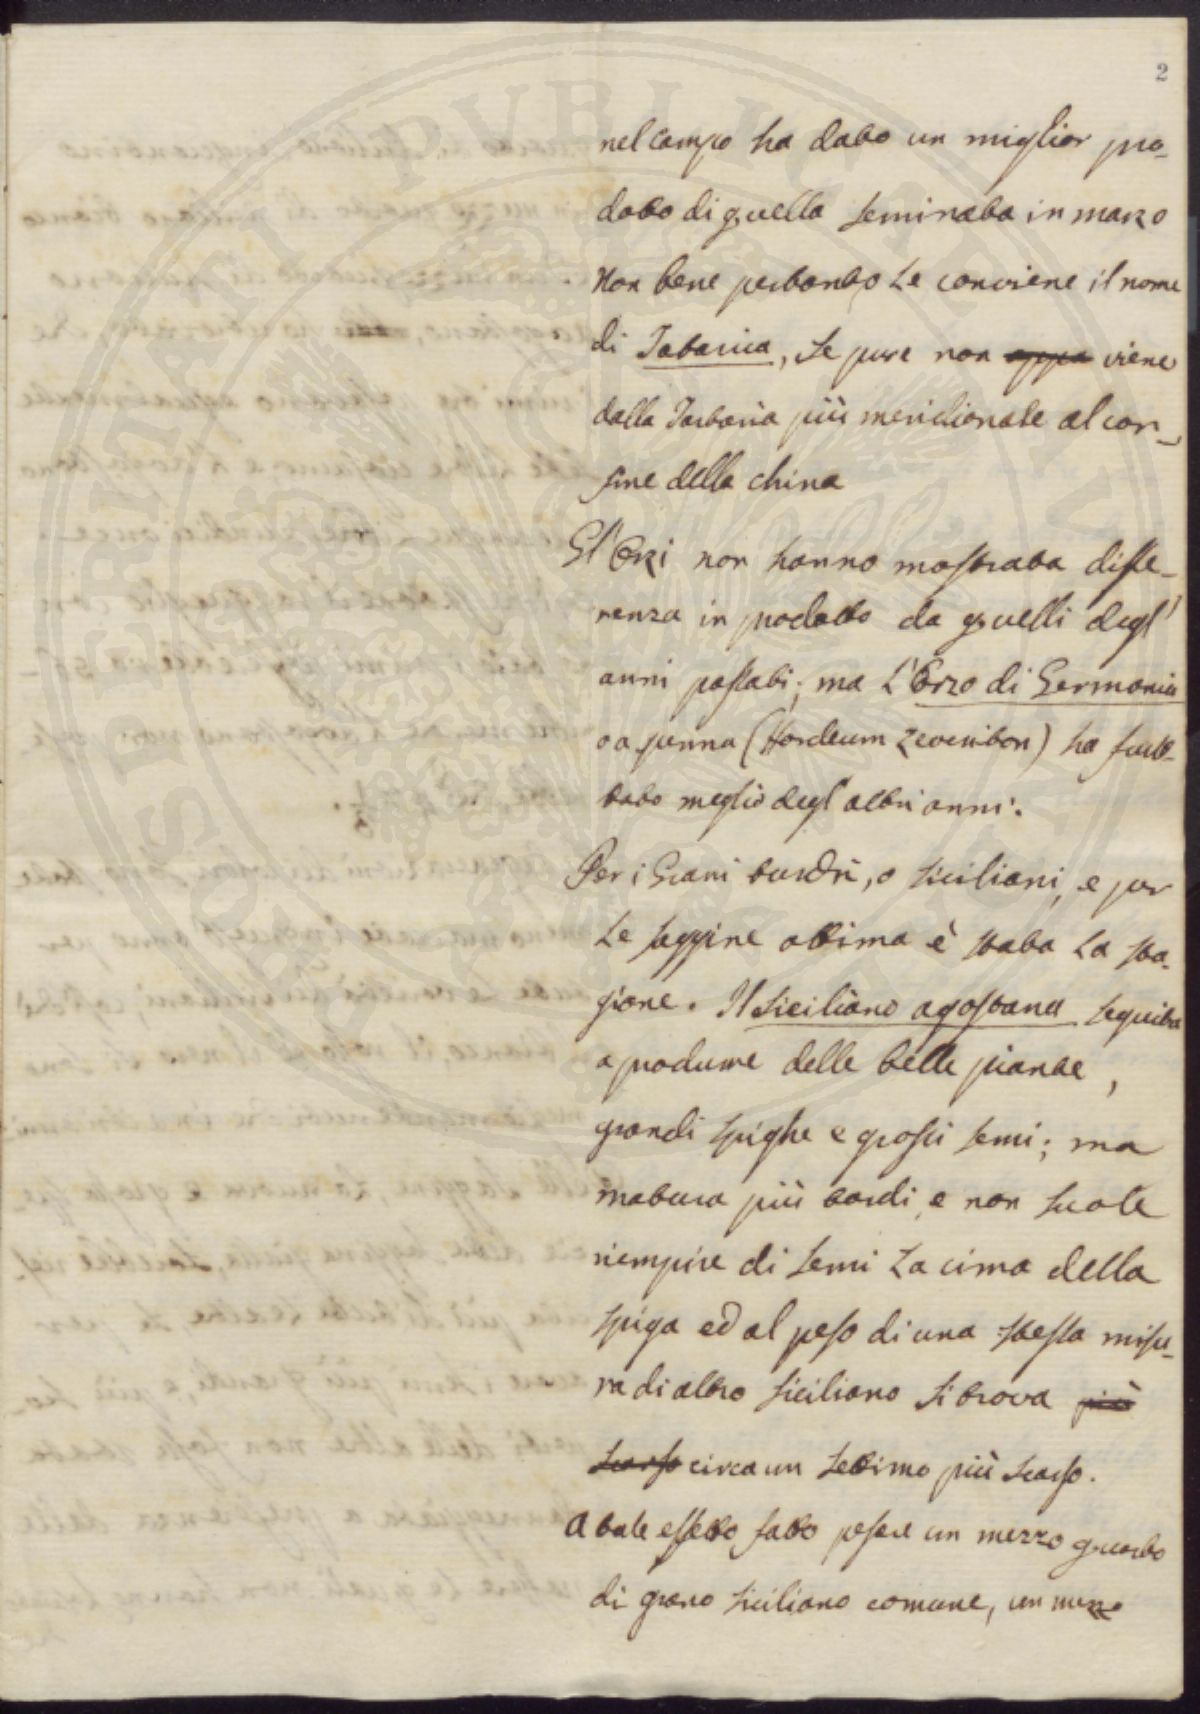 2
nel campo ha dato un miglior pro-
dotto di quella seminata in marzo
Non bene pertanto le conviene il nome
di Tataricа, se pure non appa viene
dalla Tartaria più meridionale al con-
fine della china
Gl'Orzi non hanno mostrata diffe-
renza in prodotto da quelli degl'
anni passati; ma l'Orzo di Germania
o a penna (Hordeum Zeocriton) ha frut-
tato meglio degl'altri anni.
Per i Grani turchi, o siciliani, e per
le saggine ottima è stata la sta-
gione. Il Siciliano agostano seguita
a produrre delle belle piante,
grandi spighe e grossi semi; ma
matura più tardi, e non suole
riempire di semi la cima della
spiga ed al peso di una stessa misu-
ra di altro siciliano si trova più
scarso circa un settimo più scarso.
A tale effetto fatto pesare un mezzo quarto
di grano siciliano comune, un mezzo